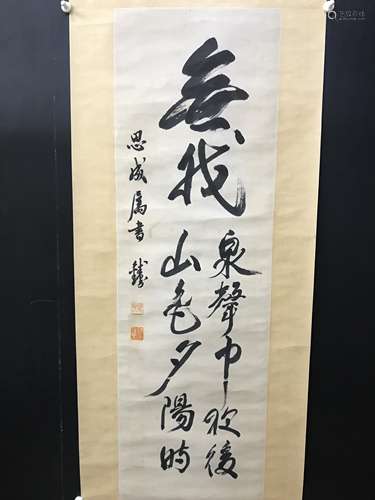 無我
泉聲中夜後
山色夕陽時
思成属書